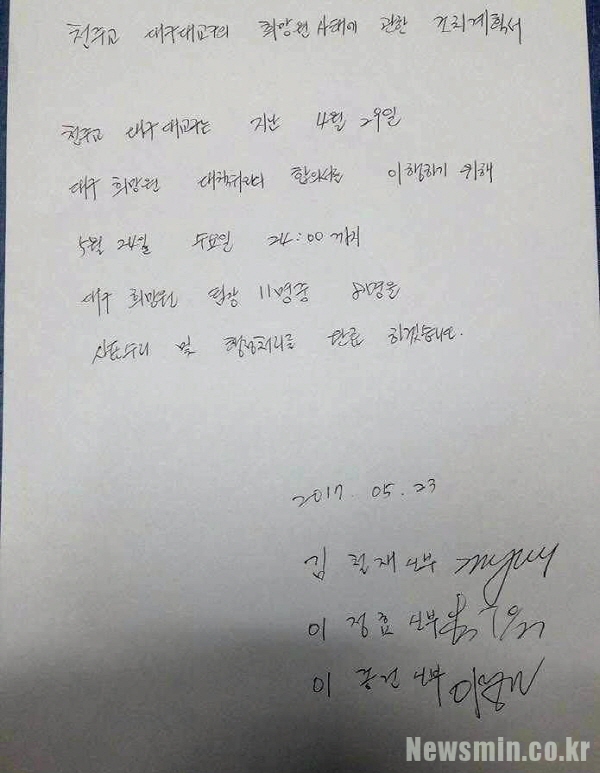 천주교 대구대교구의 희망원 사태에 관한 조치계획서
천주교 대구대교구는 지난 4월 29일
대구 희망원 대책위와의 합의서를 이행하기 위해
5월 24일 수요일 24:00 까지
대구 희망원 팀장 11명중 8명을
사표수리 및 행정처리를 완료 하겠습니다.
2017. 05. 23
김 철재 신부
이 정효 신부
이 신부
Newsmin.co.kr